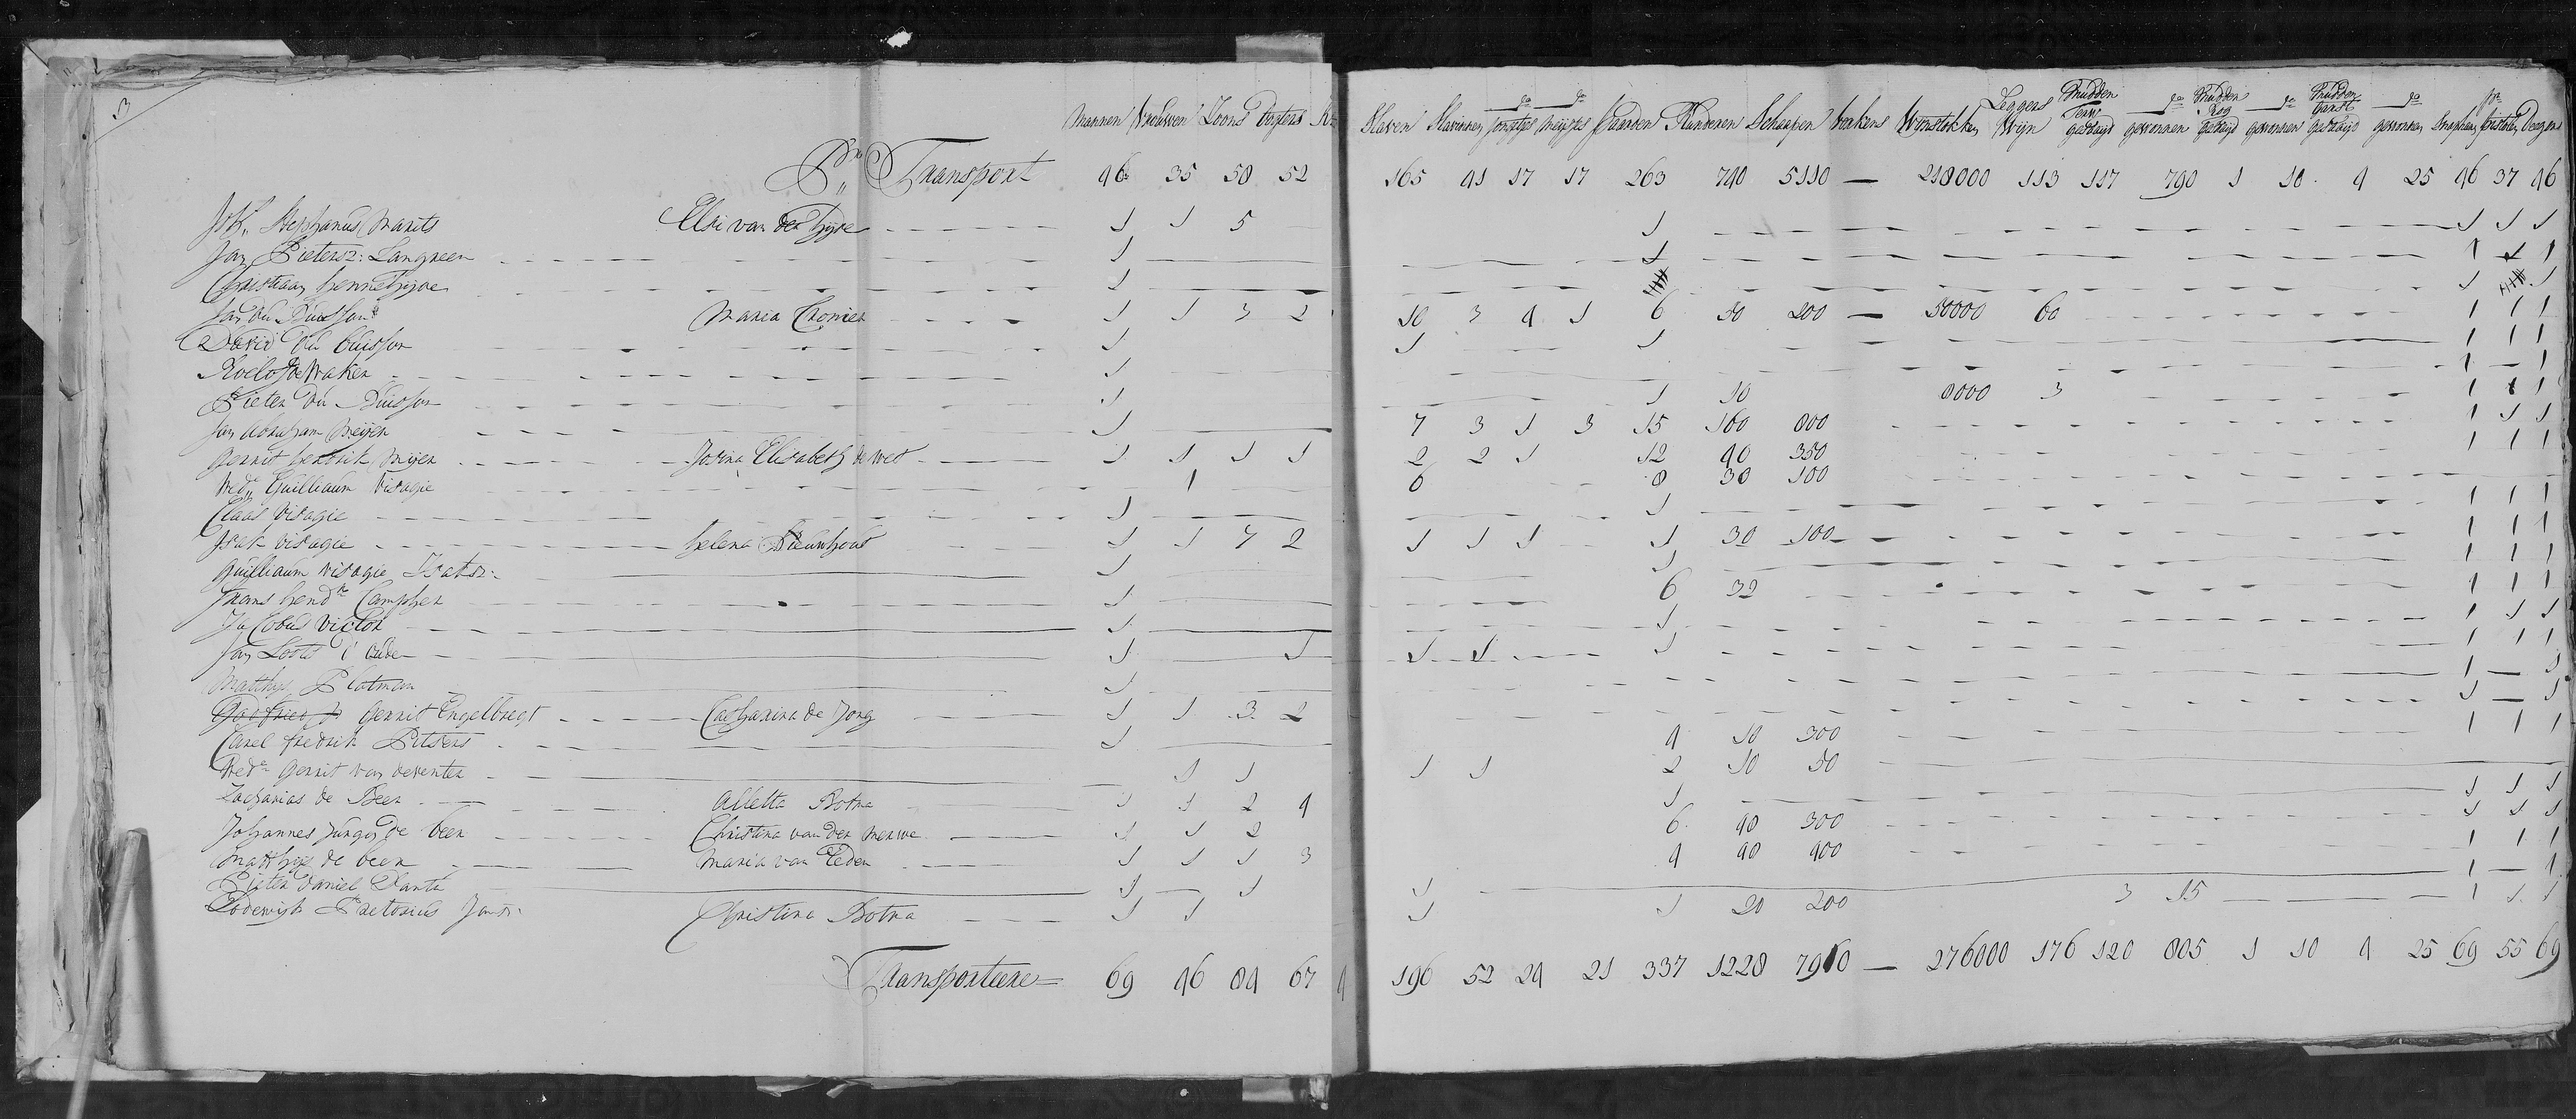 3
Mannen Vrouwen Zoons Dogters Kn
Slaven Slavinnen do jongetjes do meijsjes Paarden Runderen Schaapen Varkens Wijnstokken Leggers Wijn Mudden Terw gezaayd do gewonnen Mudden Rog gezaayd do gewonnen Mudden Garst gezaayd do gewonnen Snaphaans pr Pistolen Deegens
Pr Transport 46 35 50 52 165 41 17 17 263 740 5110 — 218000 113 117 790 1 10 4 25 46 37 46
Joh: Stephanus Marits Elsi van der Hijde 1 1 5 1 1 1 1
Jan Pietersz: Langreen 1 1 1 1 1
Christiaan hennehijde 1 1
Jan du Buisson Maria Cronier 1 1 3 2 10 3 4 1 6 50 200 — 50000 60 1 1 1
David du buisson 1 1 1 1 1 1
Roelof de Waken 1 1 — 1
Pieter du Buisson 1 1 10 8000 3 1 1 1
Jan Abraham Meijer 1 7 3 1 3 15 160 800 1 1 1
Gerrit hendrik Meijer Josina Elisabeth de wet 1 1 1 1 2 2 1 12 40 350 1 1 1
Wede Guilliaum Visagie 1 6 8 30 100
Claas Visagie 1 1 1 1 1
Isak Visagie helena Nieuwhout 1 1 7 2 1 1 1 1 30 100 1 1 1
Guilliaum Visagie Isaksz: 1 1 1 1 1
Frans hendk Campher 1 6 32 1 1 1
Jacobus Victor 1 1 1 1 1
Jan Loots d'oude 1 1 1 1 1 1 1 1
Matthijs Plotman 1 1 — 1
Gerrit Engelbregt Catharina de Jong 1 1 3 2 1 — 1
Carel fredrik Pitsers 1 4 10 300 1 1 1
Wede Gerrit van deventer 1 1 1 1 2 10 50
Zacharias de Beer Alletta Botma 1 1 2 4 1 1 1 1
Johannes Jurgen de beer Christina van der Merwe 1 1 2 6 40 300 1 1 1
Matthijs de beer Maria van Eeden 1 1 1 3 4 40 400 1 1 1
Pieter Daniel 1 1 1 1 — 1
Lodewijk Pretorius Jansz: Christina Botma 1 1 1 1 20 200 3 15 1 1 1
Transporteere 69 46 84 67 4 196 52 24 21 337 1228 7910 — 276000 176 120 805 1 10 4 25 69 55 69